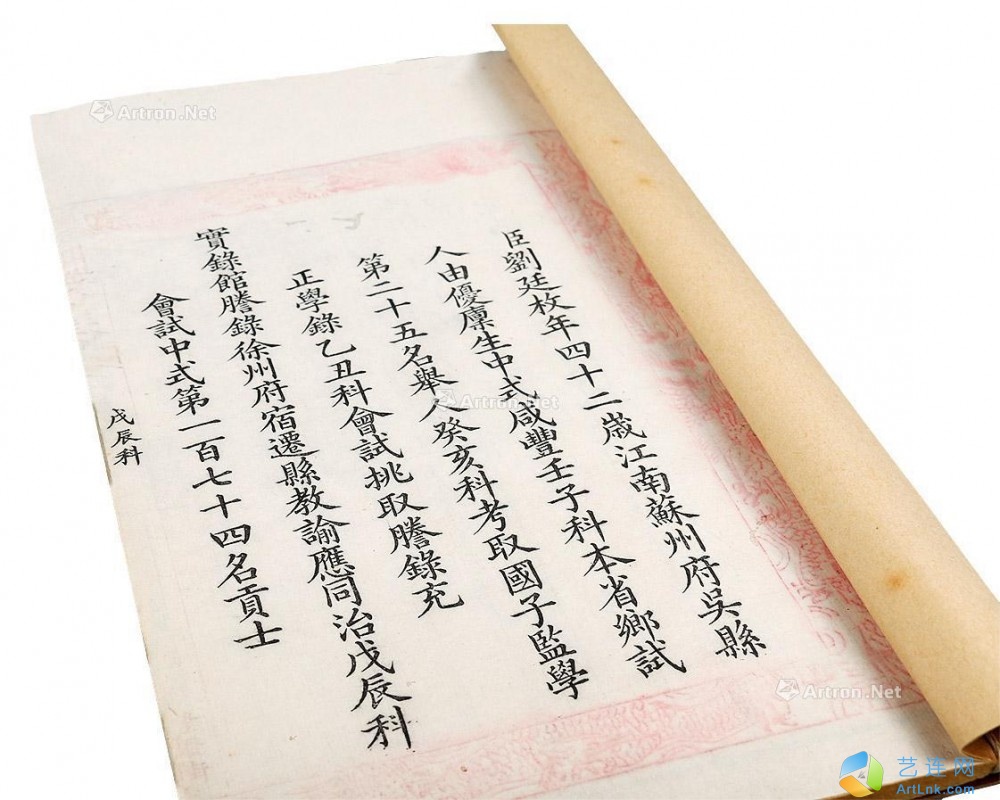 臣劉廷枚年四十二歲江南蘇州府吳縣
人由優廩生中式咸豐壬子科本省鄉試
第二十五名舉人癸亥科考取國子監學
正學錄乙丑科會試挑取謄錄充
實錄館謄錄徐州府宿遷縣教諭應同治戊辰科
會試中式第一百七十四名貢士
戊辰科
Artron.Net
Artron.Net
Artron.Net
Artron.Net
艺连网
ArtLnk.com